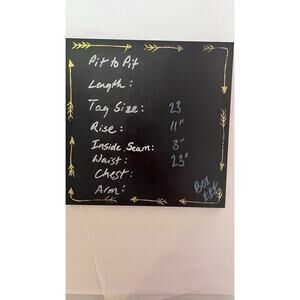 Pit to Pit
Length:
Tag Size: 23
Rise: 11"
Inside Seam: 3"
Waist: 23"
Chest:
Arm:
Box